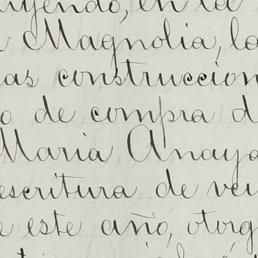 uyendo, en la
Magnolia, la
as construccion
o de compra d
Maria Anaya
escritura de
e este año, otorg